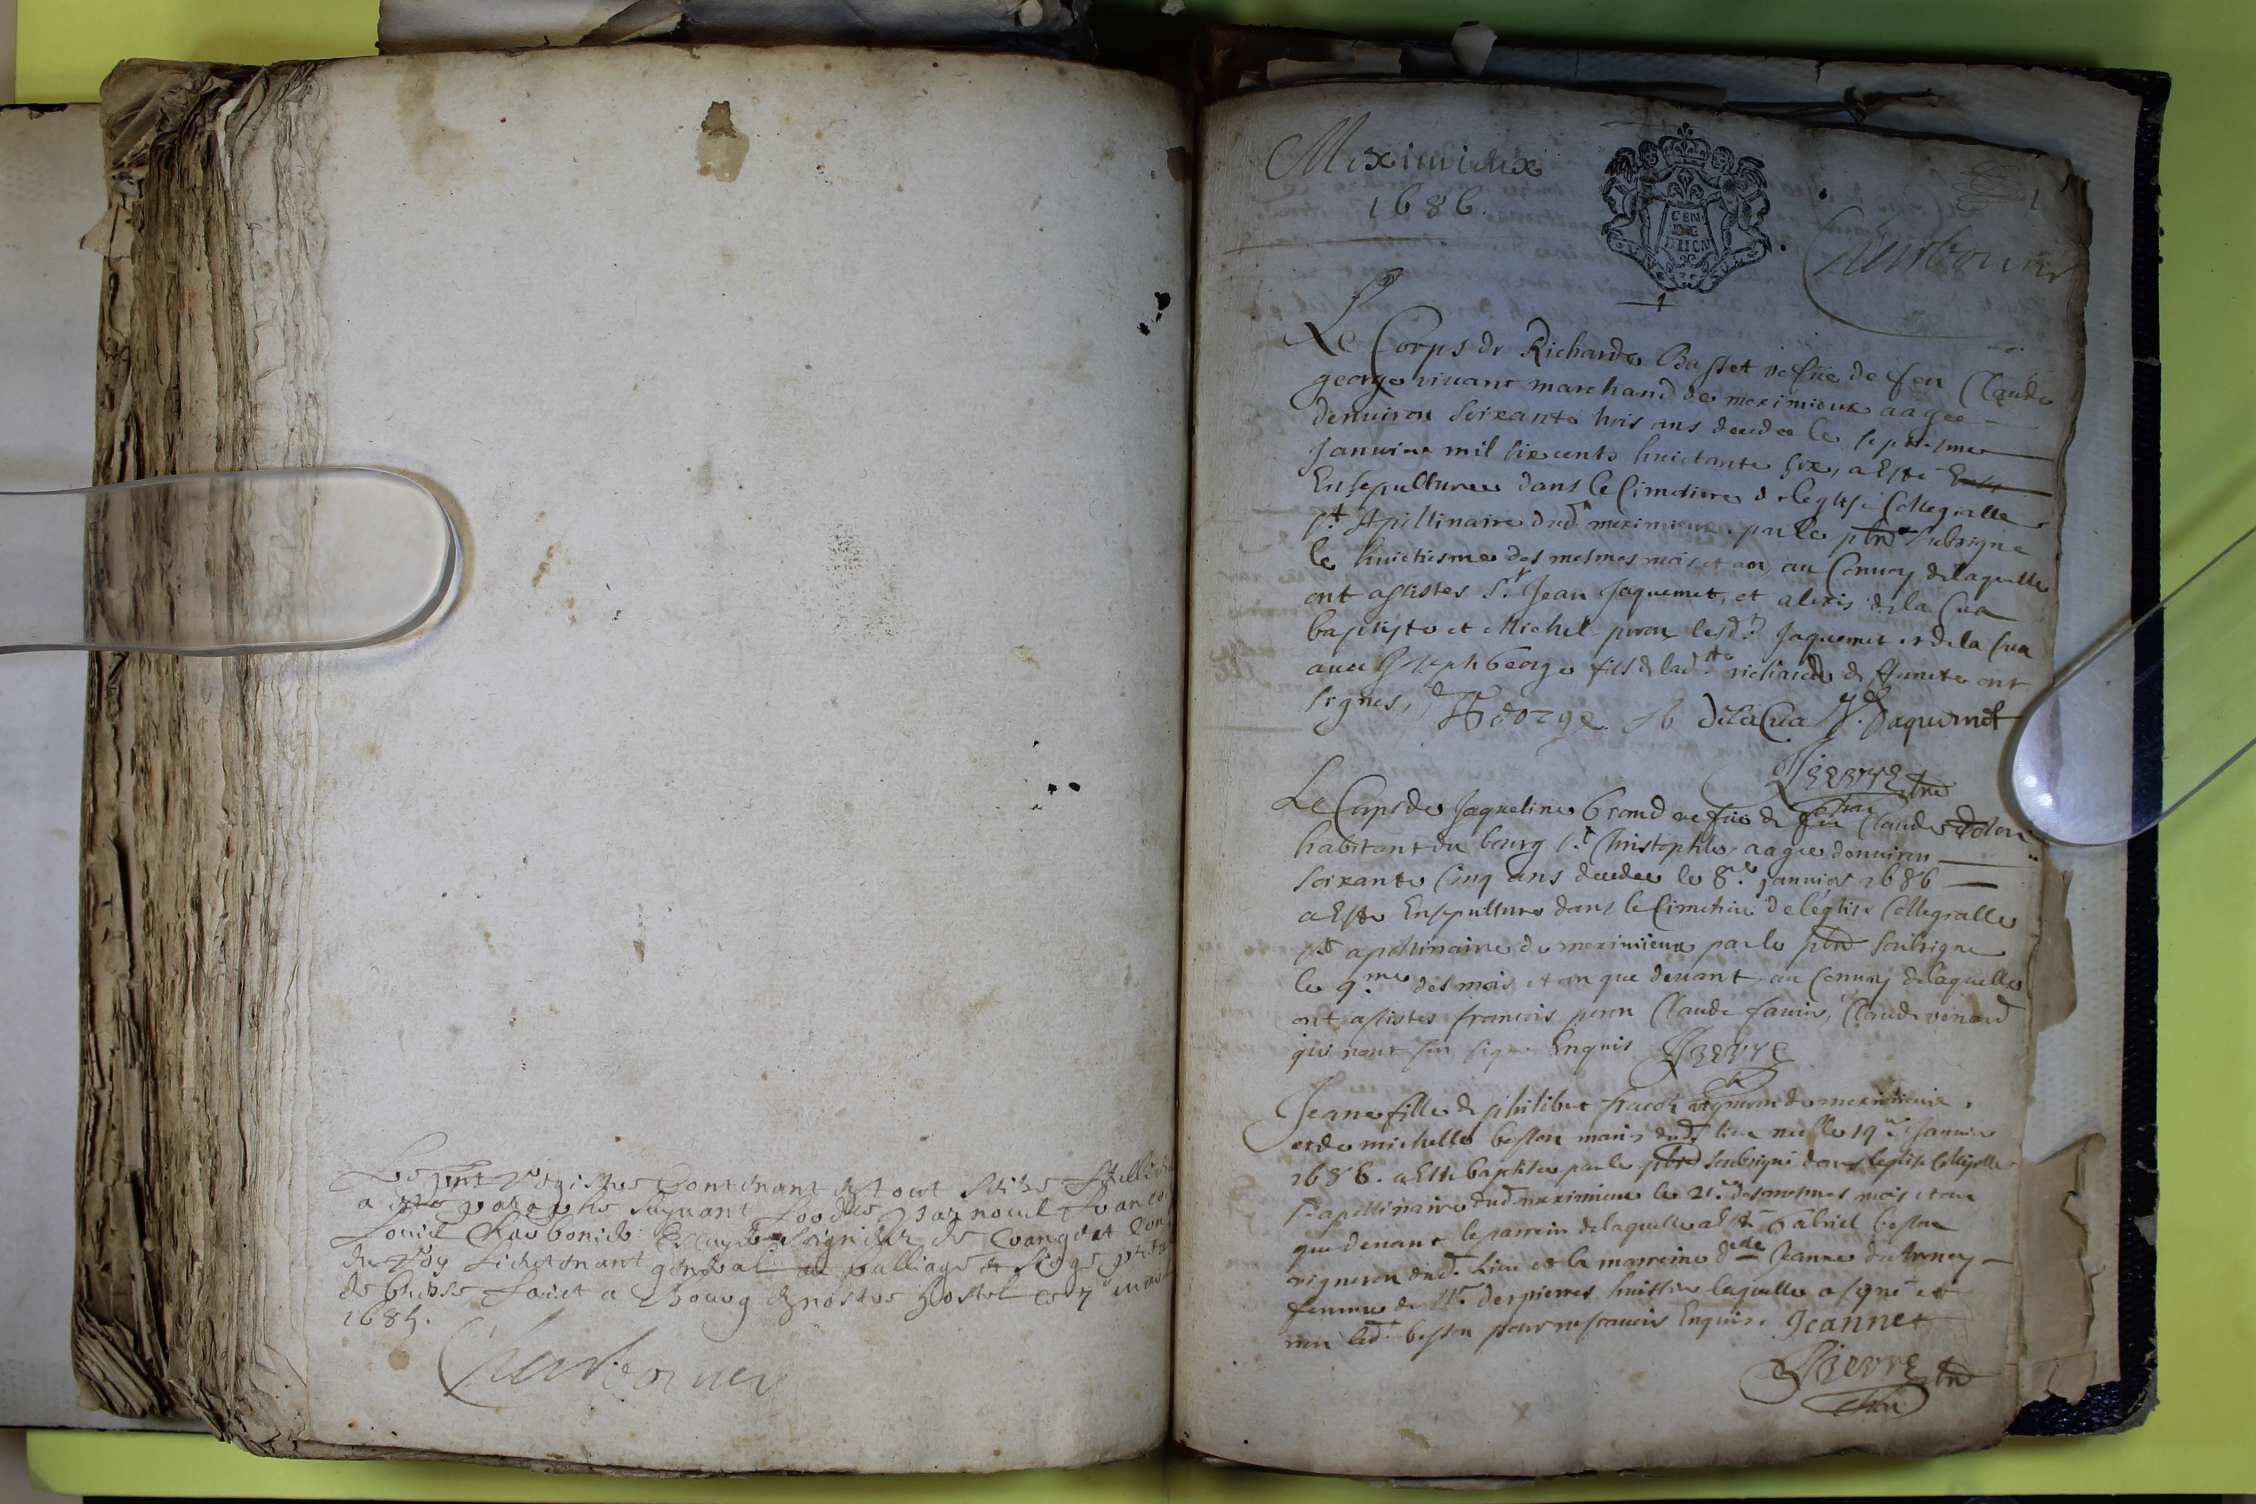 Le pnt Registre Contenant en tout seize feuillets
a este paraphe suyuant par nous
Louis Charbonier Escuyer Seigneur de Crangeat Con
du Roy Lieutenant general au balliage et siege
de bresse faict a Bourg en nostre hostel ce 7
1685.
Charbonier
Meximieux
1686.
1
Charbonier
GEN
DE
DIION
1
Le Corps de Richarde Busset vefue de feu Claude
george viuant marchand de meximieux aagee
denuiron soixante trois ans decedee le septiesme
Januier mil six cents huictante six, a este
Ensepulturee dans le Cimetiere de leglise Collegialle
st Apollinaire dud meximieux par le pbre subsigne
le huictiesme des mesmes mois et an, au Conuoy de laquelle
ont assistes sr Jean Jaquemet, et alexis de la Cua
baptiste et Michel peron lesd. Jaquemet et de la Cua
auec Joseph George fils de lad. richarde deffuncte ont
signes, George A dela Cua J. Jaquemet
Fieure pbre
Le Corps de Jaqueline Grand vefue de feu Claude
habitant du bourg st Christophle aagee denuiron
soixante Cinq ans decedee le 8.e januier 1686
a este Ensepulture dans le Cimetiere de leglise Collegialle
st apollinaire de meximieux par le pbre soubsigne
le 9.me des mois et an que deuant au Conuoy de laquelle
ont assistes francois peron Claude fauier, Claude venard
qui nont sceu signe Enquis Fieure
Jeane fille de philibert vigneron de meximieux
et de michelle besson maries dud. lieu nee le 19.e Januier
1686. a este baptisee par le pbre soubsigne dans leglise Collegialle
st apollinaire dud. meximieux le 21.e des mesmes mois et an
que deuant le parrein de laquelle a este Gabriel besson
vigneron dud. Lieu et la marreine Jeanne
femme de Mr. despierres huissier laquelle a signe et
non led. besson pour ne scauoir Enquis. Jeanne
Fieure pbre